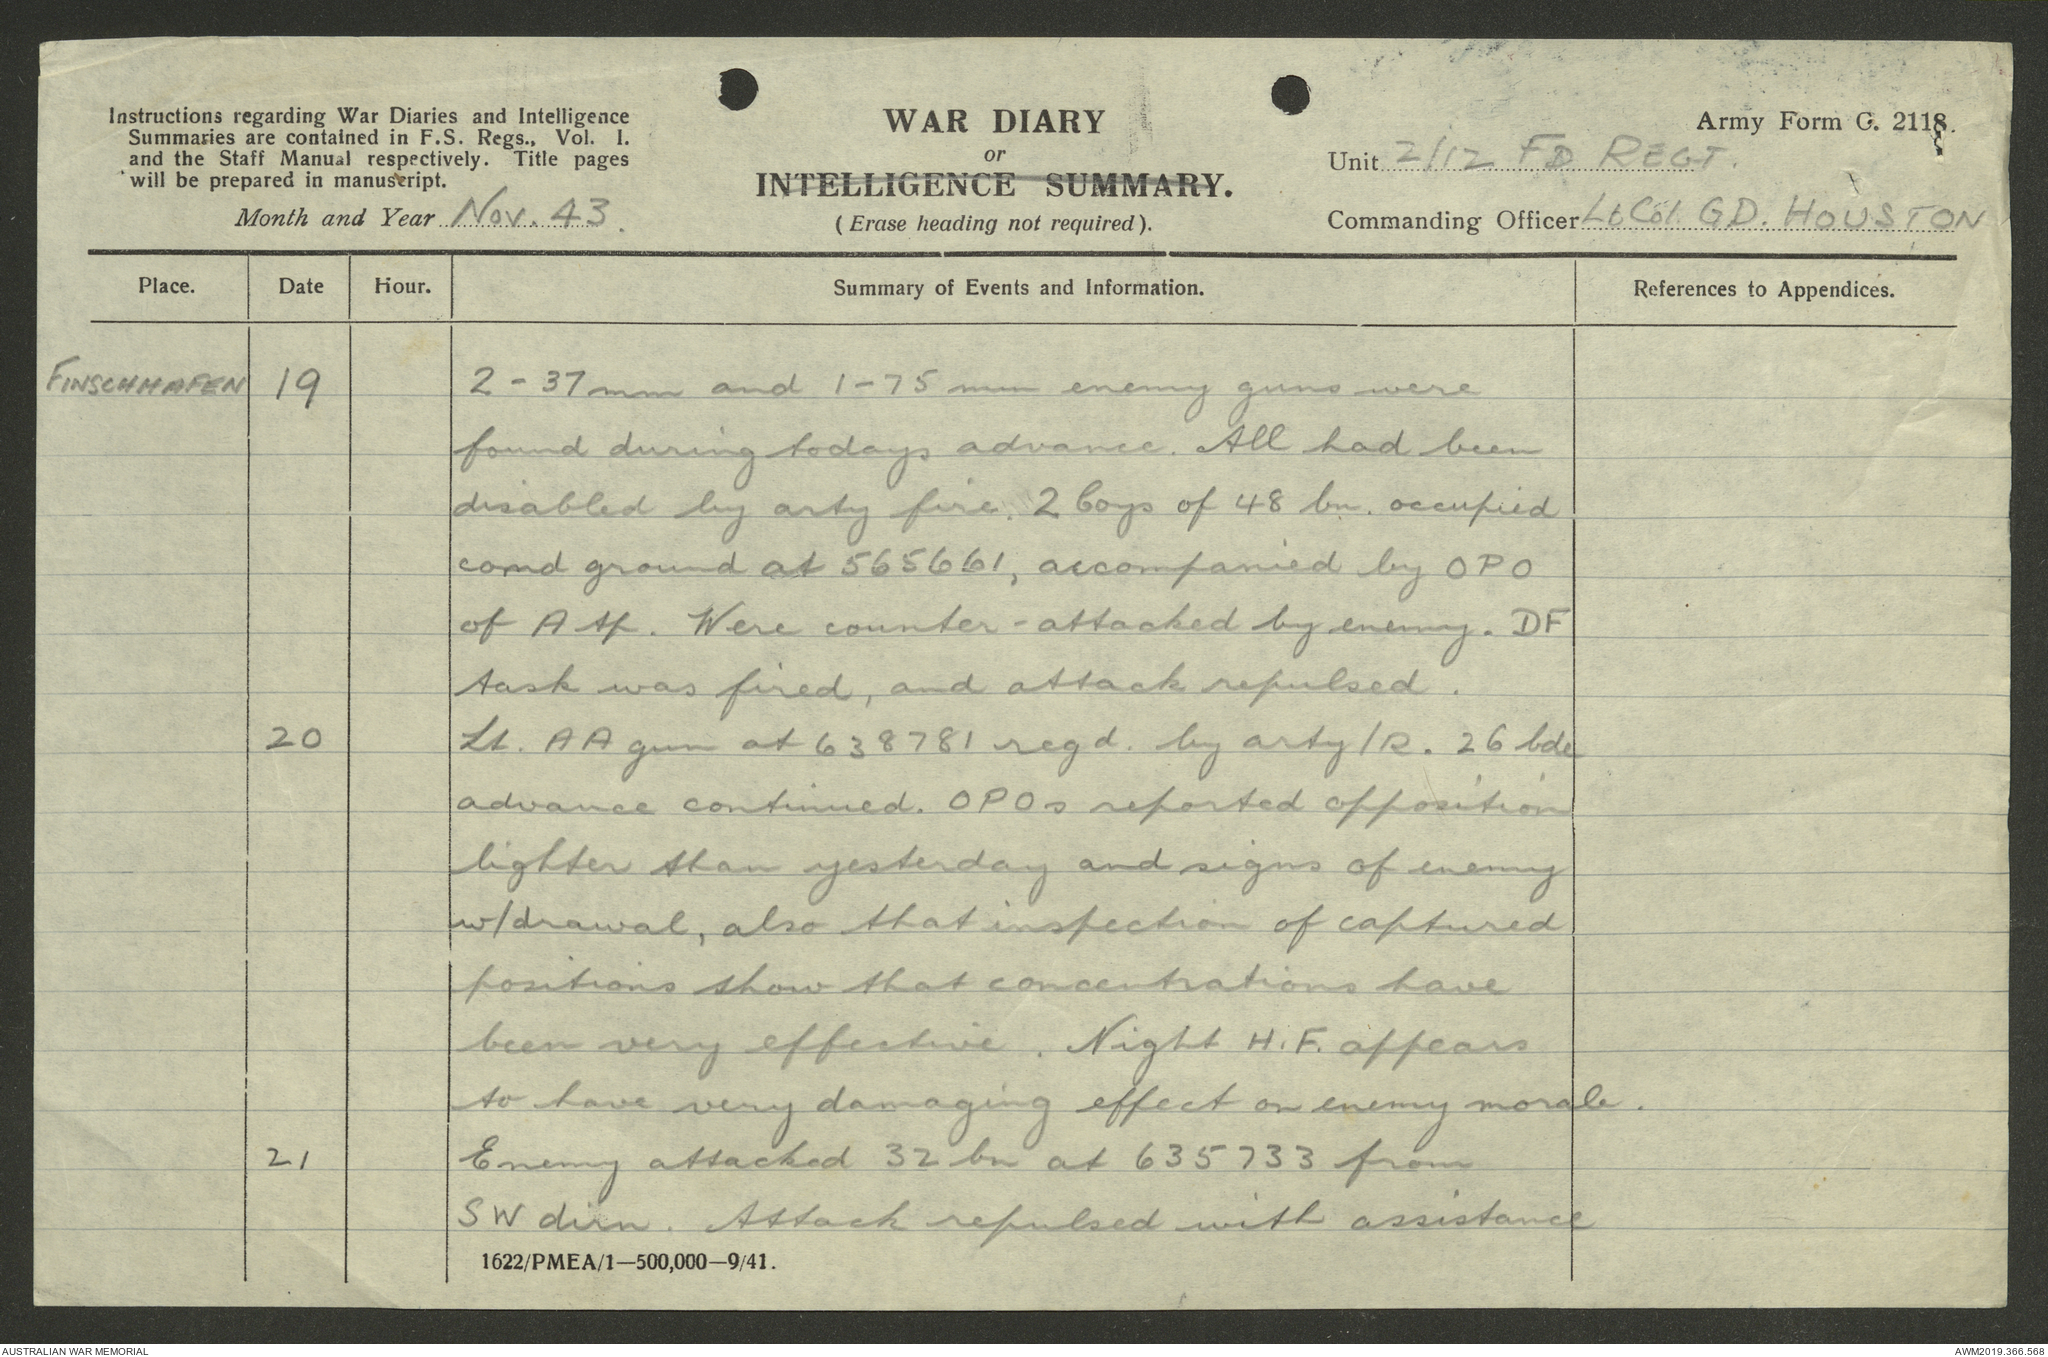 Instructions regarding War Diaries and Intelligence
Summaries are contained in F.S. Regs., Vol. I.
and the Staff Manual respectively. Title pages
will be prepared in manuscript.
Month and Year Nov. 43.
WAR DIARY
or
INTELLIGENCE SUMMARY.
(Erase heading not required).
Army Form C. 2118.
Unit 2/12 FD REGT.
Commanding Officer Lt Col. GD. HOUSTON
Place. Date Hour. Summary of Events and Information. References to Appendices.
FINSCHHAFEN 19 2 - 37 mm and 1 - 75 mm enemy guns were
found during todays advance. All had been
disabled by arty fire. 2 Coys of 48 bn. occupied
comd ground at 565661, accompanied by OPO
of A tp. Were counter-attacked by enemy. DF
task was fired, and attack repulsed.
20 Lt. AA gun at 638781 regd. by arty/R. 26 bde
advance continued. OPOs reported opposition
lighter than yesterday and signs of enemy
w/drawal, also that inspection of captured
positions show that concentrations have
been very effective. Night H.F. appears
to have very damaging effect on enemy morale.
21 Enemy attacked 32 bn at 635733 from
SW dirn. Attack repulsed with assistance
1622/PMEA/1—500,000—9/41.
AUSTRALIAN WAR MEMORIAL
AWM2019.366.568